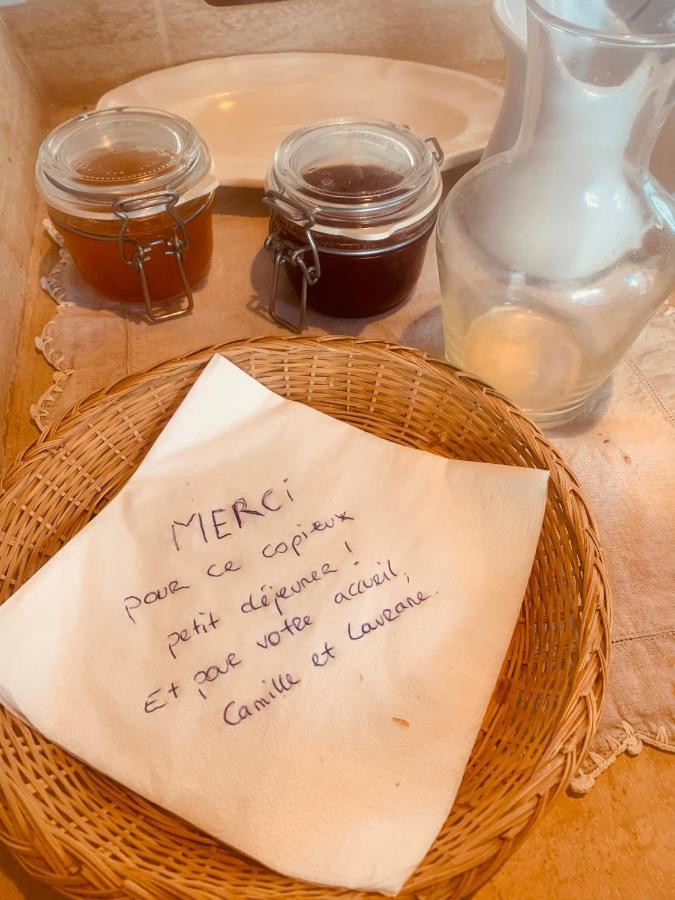 MERCi
pour ce copieux
petit déjeuner !
Et pour votre accueil,
Camille et Laurane.